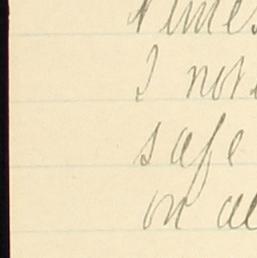 times
I not
safe
on al